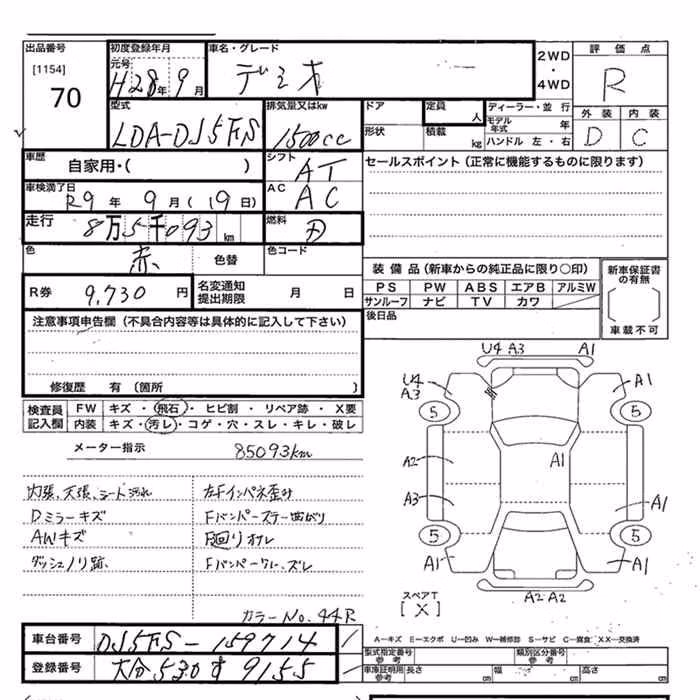 出品番号
[1154]
70
初度登録年月
元号
H28年9月
車名・グレード
デミオ
2WD
・
4WD
評価点
R
外装 内装
D C
型式
LDA-DJ5FS
排気量又はkw
1500cc
ドア
形状
定員
人
積載
kg
ディーラー・並行
モデル年式 年
ハンドル 左・右
車歴
自家用・( )
シフト
AT
セールスポイント(正常に機能するものに限ります)
車検満了日
R9年9月(19日)
AC
AC
走行
8万5千093km
燃料
色
赤
色替
色コード
R券
9,730円
名変通知
提出期限
月 日
装備品(新車からの純正品に限り○印)
PS PW ABS エアB アルミW
サンルーフ ナビ TV カワ
後日品
新車保証書
の有無
車載不可
注意事項申告欄(不具合内容等は具体的に記入して下さい)
修復歴 有(箇所 )
検査員
記入欄
FW キズ・飛石・ヒビ割・リペア跡・X要
内装 キズ・汚レ・コゲ・穴・スレ・キレ・破レ
メーター指示 85093km
内張、天張、シート汚れ
Dミラーキズ
AWキズ
ダッシュノリ跡、
左Fインパネ歪み
Fバンパーステー曲がり
F廻りオレ
カラーNo.44R
U4 A3 A1
U4
A3
A1
5 5
A2
A1
A3
A1
5 5
A1 A1
A2 A2
スペアT
[X]
車台番号
DJ5FS-159714
登録番号
大分530す9155
A-キズ E-エクボ U-凹み W-補修跡 S-サビ C-腐食 XX-交換済
型式指定番号
参考
類別区分番号
参考
車庫証明用
参考
長さ cm 幅 cm 高さ cm